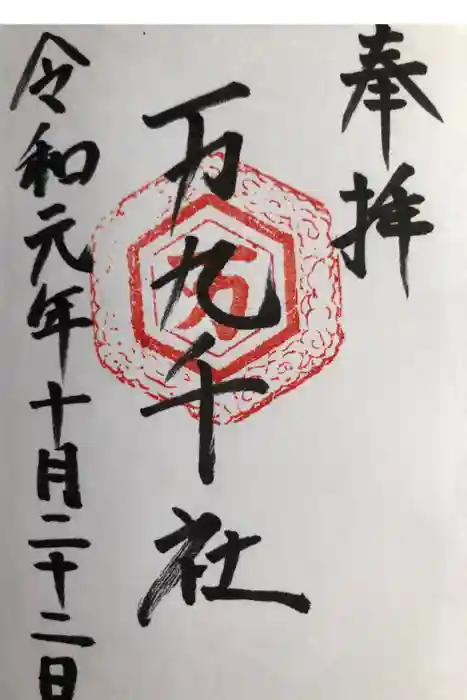 奉拝
万九千社
万
令和元年十月二十二日